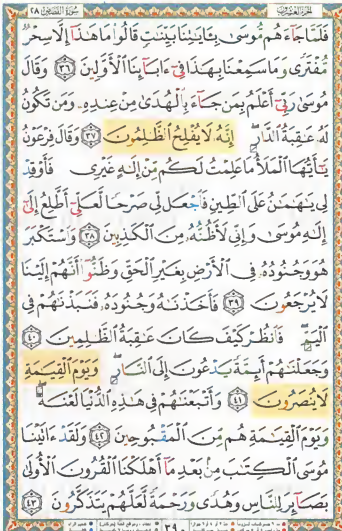 سورة القصص ٢٨
الجزء العشرون
فَلَمَّا جَآءَهُم مُّوسَىٰ بِـَٔايَـٰتِنَا بَيِّنَـٰتٍ قَالُوا۟ مَا هَـٰذَآ إِلَّا سِحْرٌ
مُّفْتَرًى وَمَا سَمِعْنَا بِهَـٰذَا فِىٓ ءَابَآئِنَا ٱلْأَوَّلِينَ ٣٦ وَقَالَ
مُوسَىٰ رَبِّىٓ أَعْلَمُ بِمَن جَآءَ بِٱلْهُدَىٰ مِنْ عِندِهِۦ وَمَن تَكُونُ
لَهُۥ عَـٰقِبَةُ ٱلدَّارِ ۖ إِنَّهُۥ لَا يُفْلِحُ ٱلظَّـٰلِمُونَ ٣٧ وَقَالَ فِرْعَوْنُ
يَـٰٓأَيُّهَا ٱلْمَلَأُ مَا عَلِمْتُ لَكُم مِّنْ إِلَـٰهٍ غَيْرِى فَأَوْقِدْ
لِى يَـٰهَـٰمَـٰنُ عَلَى ٱلطِّينِ فَٱجْعَل لِّى صَرْحًا لَّعَلِّىٓ أَطَّلِعُ إِلَىٰٓ
إِلَـٰهِ مُوسَىٰ وَإِنِّى لَأَظُنُّهُۥ مِنَ ٱلْكَـٰذِبِينَ ٣٨ وَٱسْتَكْبَرَ
هُوَ وَجُنُودُهُۥ فِى ٱلْأَرْضِ بِغَيْرِ ٱلْحَقِّ وَظَنُّوٓا۟ أَنَّهُمْ إِلَيْنَا
لَا يُرْجَعُونَ ٣٩ فَأَخَذْنَـٰهُ وَجُنُودَهُۥ فَنَبَذْنَـٰهُمْ فِى
ٱلْيَمِّ ۖ فَٱنظُرْ كَيْفَ كَانَ عَـٰقِبَةُ ٱلظَّـٰلِمِينَ ٤٠
وَجَعَلْنَـٰهُمْ أَئِمَّةً يَدْعُونَ إِلَى ٱلنَّارِ ۖ وَيَوْمَ ٱلْقِيَـٰمَةِ
لَا يُنصَرُونَ ٤١ وَأَتْبَعْنَـٰهُمْ فِى هَـٰذِهِ ٱلدُّنْيَا لَعْنَةً ۖ
وَيَوْمَ ٱلْقِيَـٰمَةِ هُم مِّنَ ٱلْمَقْبُوحِينَ ٤٢ وَلَقَدْ ءَاتَيْنَا
مُوسَى ٱلْكِتَـٰبَ مِنۢ بَعْدِ مَآ أَهْلَكْنَا ٱلْقُرُونَ ٱلْأُولَىٰ
بَصَآئِرَ لِلنَّاسِ وَهُدًى وَرَحْمَةً لَّعَلَّهُمْ يَتَذَكَّرُونَ ٤٣
٣٩٠